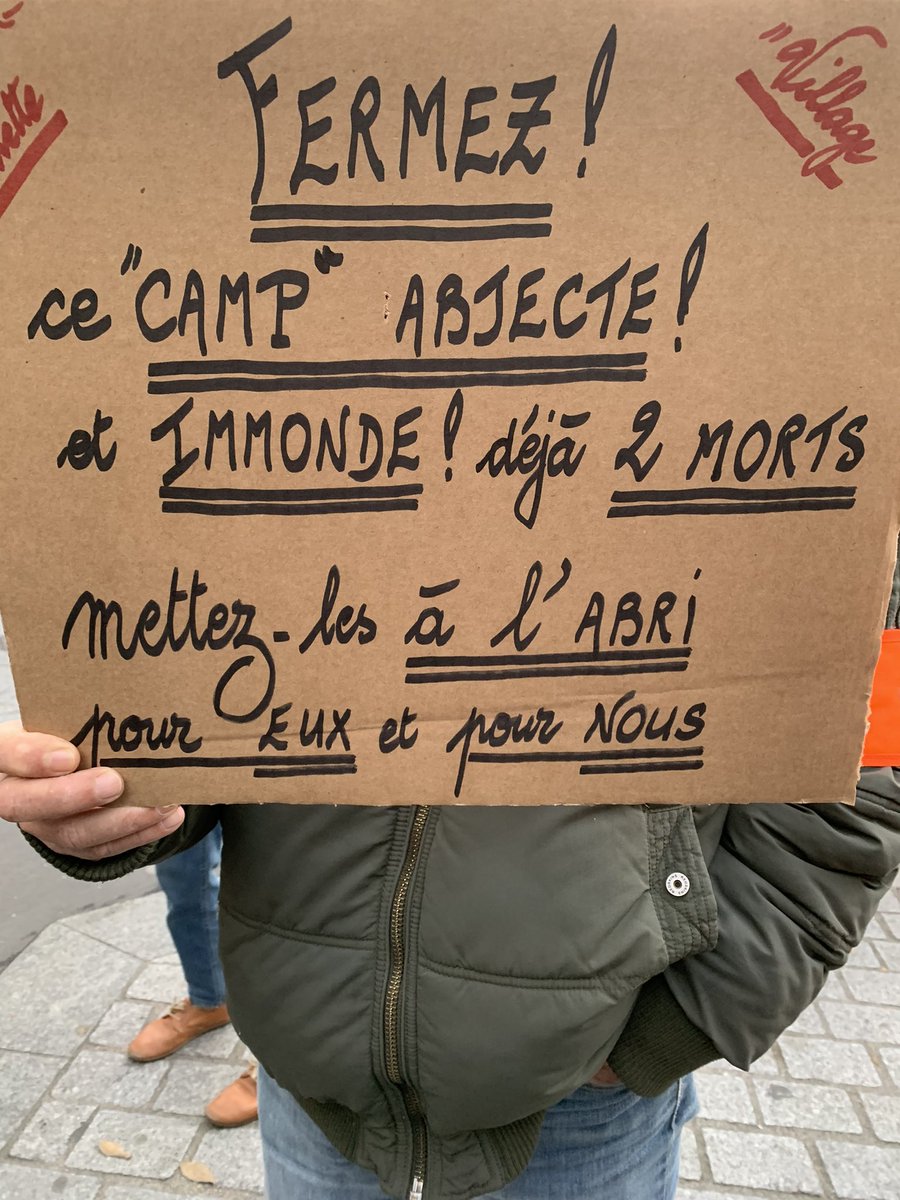 FERMEZ!
"Village"
ce "CAMP" ABJECTE!
et IMMONDE! déjà 2 MORTS
mettez-les à l'ABRI
pour EUX et pour NOUS